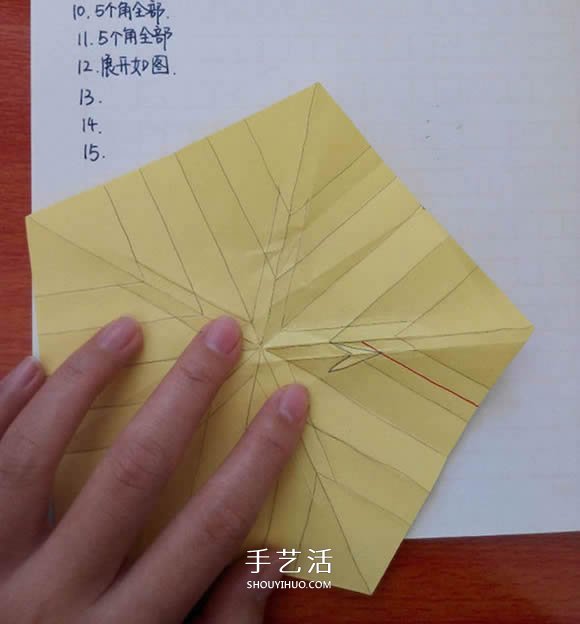 10. 5个角全部.
11. 5个角全部
12. 展开如图.
13.
14.
15.
手艺活
SHOUYIHUO.COM